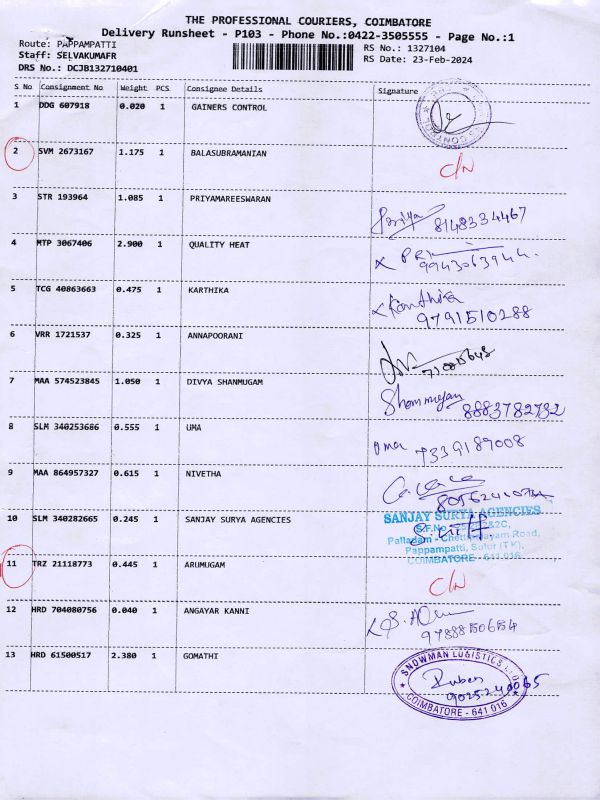 THE PROFESSIONAL COURIERS, COIMBATORE
Delivery Runsheet - P103 - Phone No.:0422-3505555 - Page No.:1
Route: PAPPAMPATTI RS No.: 1327104
Staff: SELVAKUMAFR RS Date: 23-Feb-2024
DRS No.: DCJB132710401
S No Consignment No Weight PCS Consignee Details Signature
1 DDG 607918 0.020 1 GAINERS CONTROL
2 SVM 2673167 1.175 1 BALASUBRAMANIAN C/N
3 STR 193964 1.085 1 PRIYAMAREESWARAN
Priya 8148334467
4 MTP 3067406 2.900 1 QUALITY HEAT
9943063944
5 TCG 40863663 0.475 1 KARTHIKA
Karthika
9791510288
6 VRR 1721537 0.325 1 ANNAPOORANI
7 MAA 574523845 1.050 1 DIVYA SHANMUGAM
Shanmugam 8883782732
8 SLM 340253686 0.555 1 UMA
Uma 7339189008
9 MAA 864957327 0.615 1 NIVETHA
10 SLM 340282665 0.245 1 SANJAY SURYA AGENCIES
SANJAY SURYA AGENCIES
Palladam - Chettipalayam Road,
Pappampatti, Sulur (T.K),
COIMBATORE - 641 016
11 TRZ 21118773 0.445 1 ARUMUGAM C/N
12 HRD 704080756 0.040 1 ANGAYAR KANNI
13 HRD 61500517 2.380 1 GOMATHI
SNOWMAN LOGISTICS LTD
Ruben
9025240065
COIMBATORE - 641 016